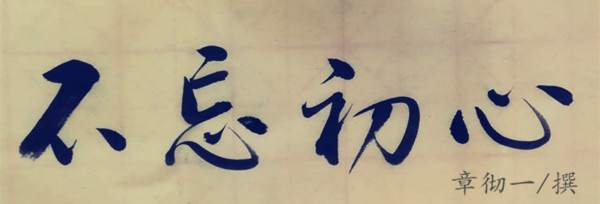 不忘初心
章彻一/撰